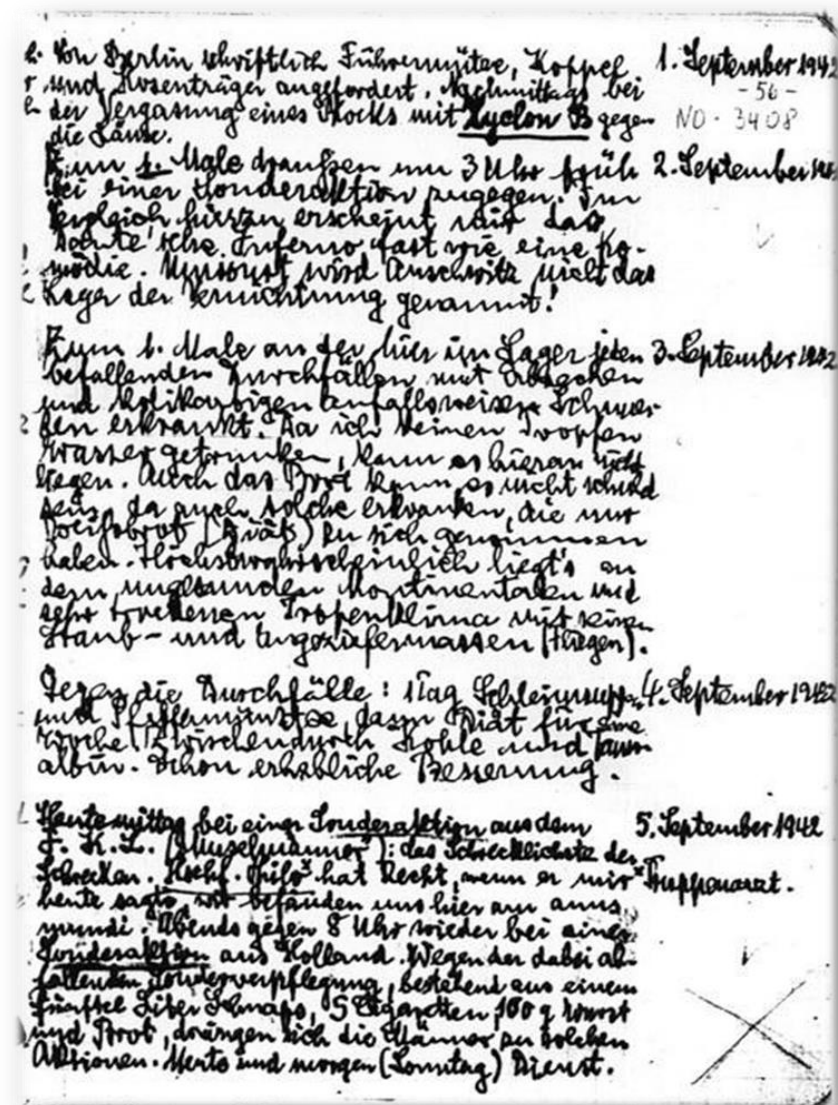 Von Berlin schriftlich Führermütze, Koppel 1. September 1942
und Hosenträger angefordert. Nachmittags bei - 56 -
der Vergasung eines Blocks mit Zyclon B gegen NO - 3408
die Läuse.
Zum 1. Male draußen um 3 Uhr früh 2. September
bei einer Sonderaktion zugegen. Im
Vergleich hierzu erscheint mir das
Dante'sche Inferno fast wie eine Ko-
mödie. Umsonst wird Auschwitz nicht das
Lager der Vernichtung genannt!
Zum 1. Male an der hier im Lager jeden 3. September 1942
befallenden Durchfällen mit Erbrechen
und kolikartigen anfallsweisen Schmer-
zen erkrankt. Da ich keinen Tropfen
Wasser getrunken, kann es hieran nicht
liegen. Auch das Brot kann es nicht schuld
sein, da auch solche erkranken, die nur
Weißbrot (Diät) zu sich genommen
haben. Höchstwahrscheinlich liegt's an
dem ungesunden kontinentalen und
sehr trockenen Tropenklima mit seinen
Staub- und Ungeziefermassen (Fliegen).
Gegen die Durchfälle: 1 Tag Schleimsuppe 4. September 1942
und Pfefferminztee, dann Diät für eine
Woche. Zwischendurch Kohle und Tann-
albin. Schon erhebliche Besserung.
Heute mittag bei einer Sonderaktion aus dem 5. September 1942
F. K. L. ("Muselmänner"): das Schrecklichste der
Schrecken. Hschf. Thilo x hat Recht, wenn er mir x Truppenarzt.
heute sagte, wir befänden uns hier am anus
mundi. Abends gegen 8 Uhr wieder bei einer
Sonderaktion aus Holland. Wegen der dabei ab-
fallenden Sonderverpflegung, bestehend aus einem
fünftel Liter Schnaps, 5 Cigaretten, 100 g Wurst
und Brot, drängen sich die Männer zu solchen
Aktionen. Heute und morgen (Sonntag) Dienst.